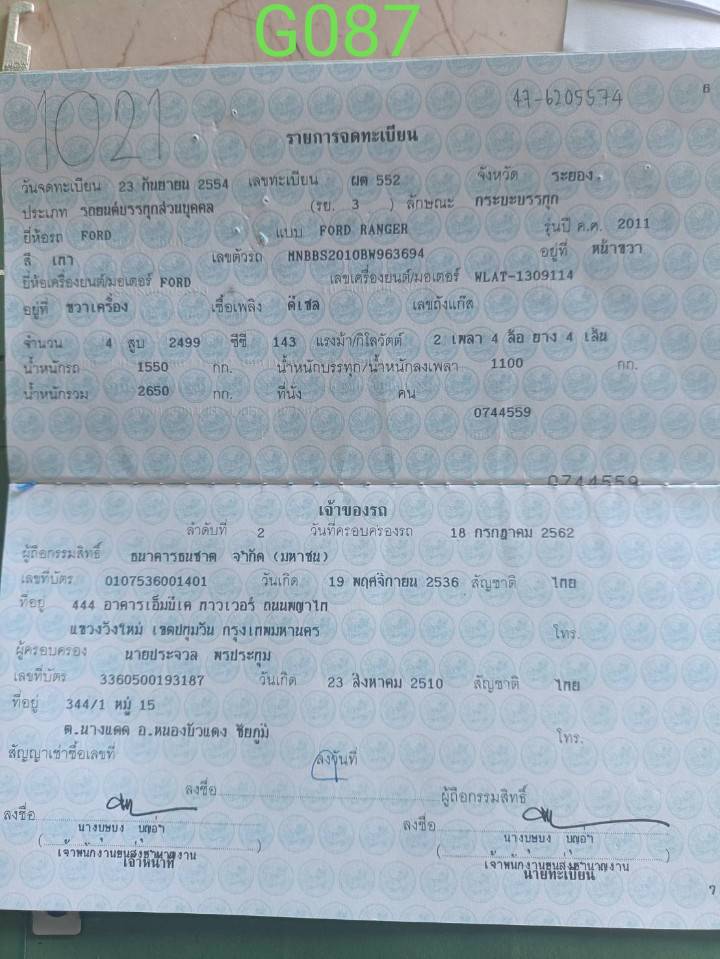 G087
1021
47-6205574
6
รายการจดทะเบียน
วันจดทะเบียน 23 กันยายน 2554 เลขทะเบียน ผต 552 จังหวัด ระยอง
ประเภท รถยนต์บรรทุกส่วนบุคคล (รย. 3 ) ลักษณะ กระบะบรรทุก
ยี่ห้อรถ FORD แบบ FORD RANGER รุ่นปี ค.ศ. 2011
สี เทา เลขตัวรถ MNBBS2010BW963694 อยู่ที่ หน้าขวา
ยี่ห้อเครื่องยนต์/มอเตอร์ FORD เลขเครื่องยนต์/มอเตอร์ WLAT-1309114
อยู่ที่ ขวาเครื่อง เชื้อเพลิง ดีเซล เลขถังแก๊ส
จำนวน 4 สูบ 2499 ซีซี 143 แรงม้า/กิโลวัตต์ 2 เพลา 4 ล้อ ยาง 4 เส้น
น้ำหนักรถ 1550 กก. น้ำหนักบรรทุก/น้ำหนักลงเพลา 1100 กก.
น้ำหนักรวม 2650 กก. ที่นั่ง คน
0744559
0744559
เจ้าของรถ
ลำดับที่ 2 วันที่ครอบครองรถ 18 กรกฎาคม 2562
ผู้ถือกรรมสิทธิ์ ธนาคารธนชาต จำกัด (มหาชน)
เลขที่บัตร 0107536001401 วันเกิด 19 พฤศจิกายน 2536 สัญชาติ ไทย
ที่อยู่ 444 อาคารเอ็มบีเค ทาวเวอร์ ถนนพญาไท
แขวงวังใหม่ เขตปทุมวัน กรุงเทพมหานคร โทร.
ผู้ครอบครอง นายประจวล พรประทุม
เลขที่บัตร 3360500193187 วันเกิด 23 สิงหาคม 2510 สัญชาติ ไทย
ที่อยู่ 344/1 หมู่ 15
ต.นางแดด อ.หนองบัวแดง ชัยภูมิ โทร.
สัญญาเช่าซื้อเลขที่ ลงวันที่
ลงชื่อ ผู้ถือกรรมสิทธิ์
ลงชื่อ ลงชื่อ
นางบุษบง นางบุษบง
เจ้าพนักงานขนส่งชำนาญงาน เจ้าพนักงานขนส่งชำนาญงาน
เจ้าหน้าที่ นายทะเบียน
7